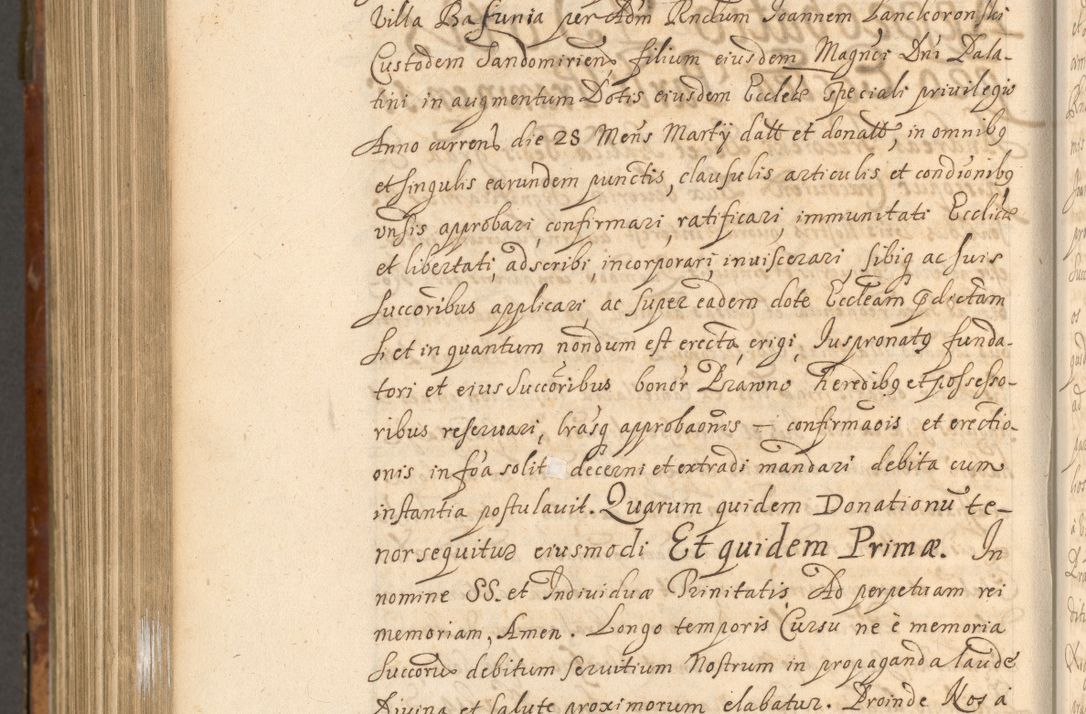 Villa Bafunia per Adm Rndum Joannem Lanckoronski
Custodem Sandomirien filium eiusdem Magnci Dni Pala-
tini in augmentum Dotis eiusdem Eccliæ speciali privilegio
Anno currenš die 28 Mens Martÿ datt et donatt, in omnibq
et singulis earundem punctis, clausulis articulis et condionibq
unsis approbari, confirmari, ratificari, immunitati Eccliæ
et libertati, adscribi, incorporari, inviscerari, sibiq ac suis
succoribus applicari, ac super eadem dote Eccleam pdictam
si et in quantum nondum est erecta, erigi, Juspronatq funda-
tori et eius Succoribus bonor Brawno heredibq et possesso-
ribus reservari, lrasq approbaonis – confirmaois et erectio-
onis in foa solit decerni et extradi mandari debita cum
instantia postulavit. Quarum quidem Donationu te-
nor sequitur eiusmodi Et quidem Primæ. In
nomine SS. et Individuæ Trinitatis Ad perpetuam rei
memoriam, Amen. Longo temporis Cursu ne è memoria
succoru debitum servitium Nostrum in propaganda laude
Divina et salute proximorum elabatur. Proinde Nos à